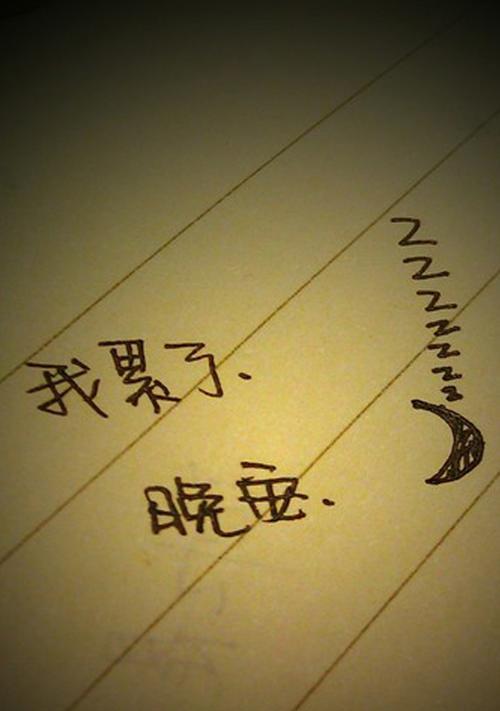 ZZZZZZZ
我累了.
晚安.